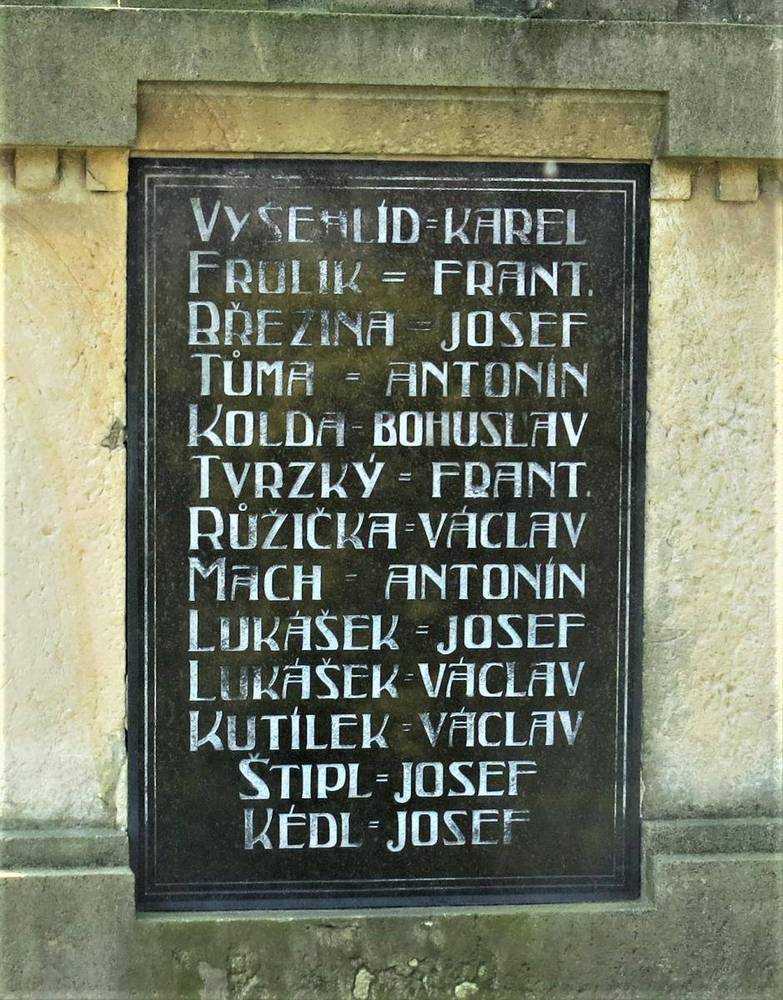 VYŠEHLÍD=KAREL
FROLIK = FRANT.
BŘEZINA = JOSEF
TŮMA = ANTONÍN
KOLDA = BOHUSLAV
TVRZKÝ = FRANT.
RŮŽIČKA=VÁCLAV
MACH = ANTONÍN
LUKÁŠEK = JOSEF
LUKÁŠEK=VÁCLAV
KUTÍLEK=VÁCLAV
ŠTIPL=JOSEF
KÉDL=JOSEF